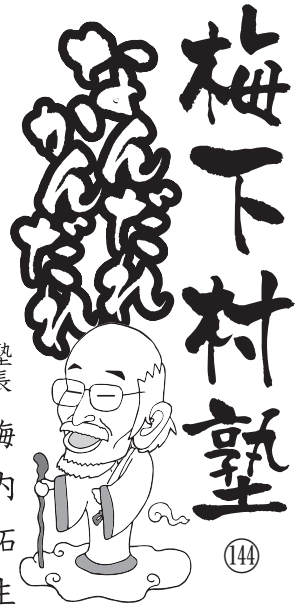 梅下村塾
144
なんだれ
かんだれ
塾長 梅内拓生